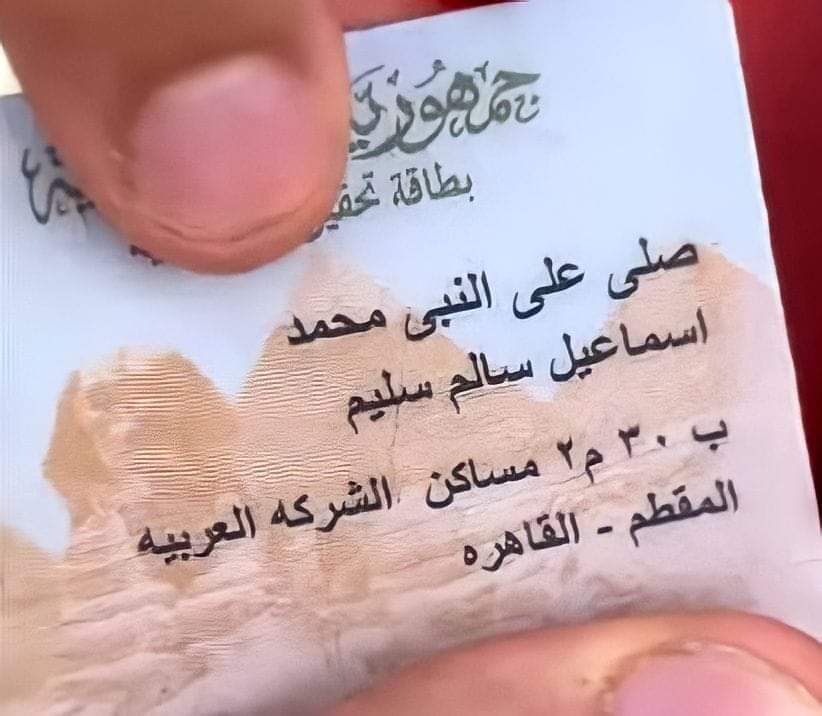 جمهورية
بطاقة تحقيق
صلى على النبى محمد
اسماعيل سالم سليم
ب ٣٠ م٢ مساكن الشركه العربيه
المقطم - القاهره